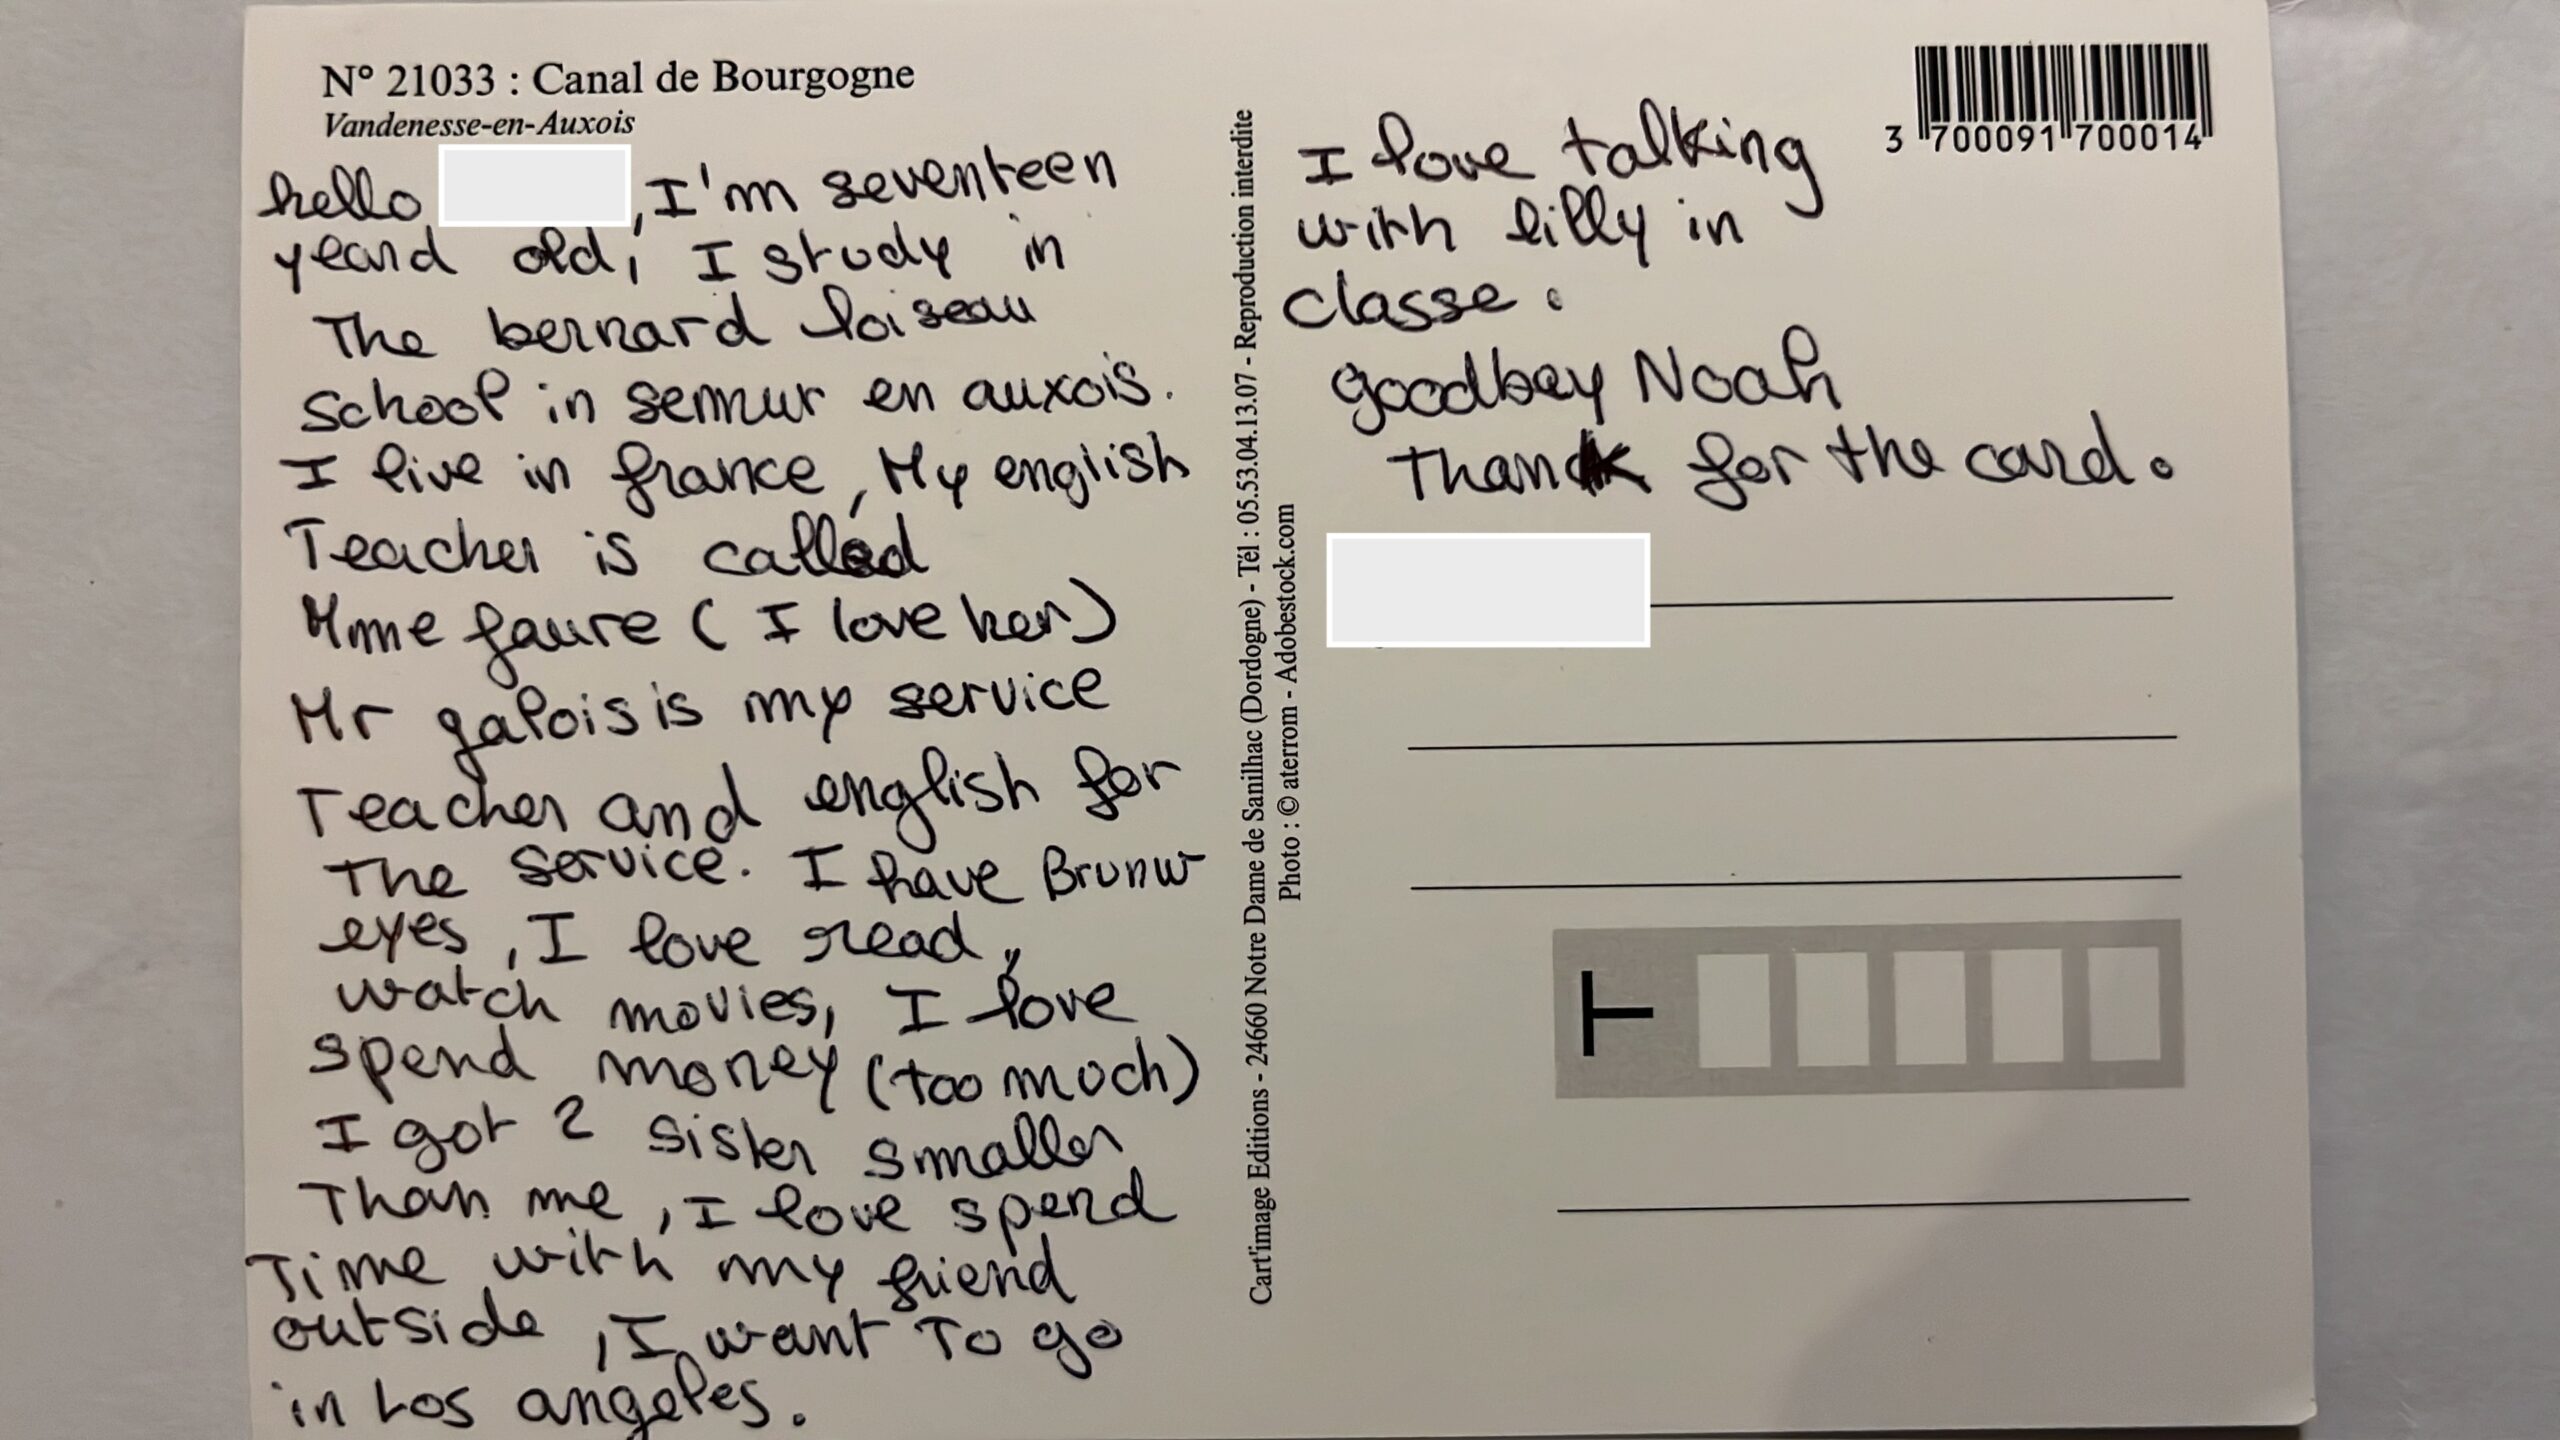 N° 21033 : Canal de Bourgogne
Vandenesse-en-Auxois
hello , I'm seventeen
yeard old, I study in
The bernard loiseau
school in semur en auxois.
I live in france, My english
Teacher is called
Mme faure ( I love her)
Mr galois is my service
Teacher and english for
The service. I have Brunw
eyes, I love read,
watch movies, I love
spend money (too much)
I got 2 sister smaller
Than me, I love spend
Time with my friend
outside, I want To go
in Los angeles.
Cart'image Editions - 24660 Notre Dame de Sanilhac (Dordogne) - Tél : 05.53.04.13.07 - Reproduction interdite
Photo : © aterrom - Adobestock.com
3 700091 700014
I love talking
with lilly in
classe.
goodbey Noah
Thank for the card.
T